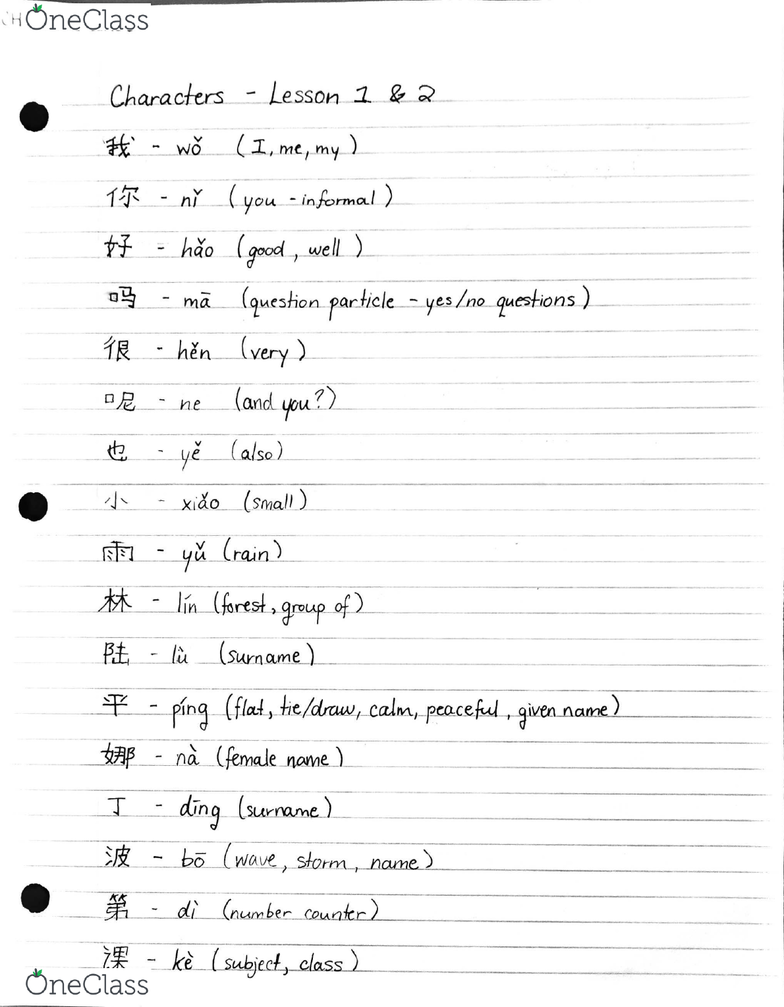 OneClass
Characters - Lesson 1 & 2
我 - wǒ (I, me, my)
你 - nǐ (you - informal)
好 - hǎo (good, well)
吗 - mā (question particle - yes/no questions)
很 - hěn (very)
呢 - ne (and you?)
也 - yě (also)
小 - xiǎo (small)
雨 - yǔ (rain)
林 - lín (forest, group of)
陆 - lù (surname)
平 - píng (flat, tie/draw, calm, peaceful, given name)
娜 - nà (female name)
丁 - dīng (surname)
波 - bō (wave, storm, name)
第 - dì (number counter)
课 - kè (subject, class)
OneClass